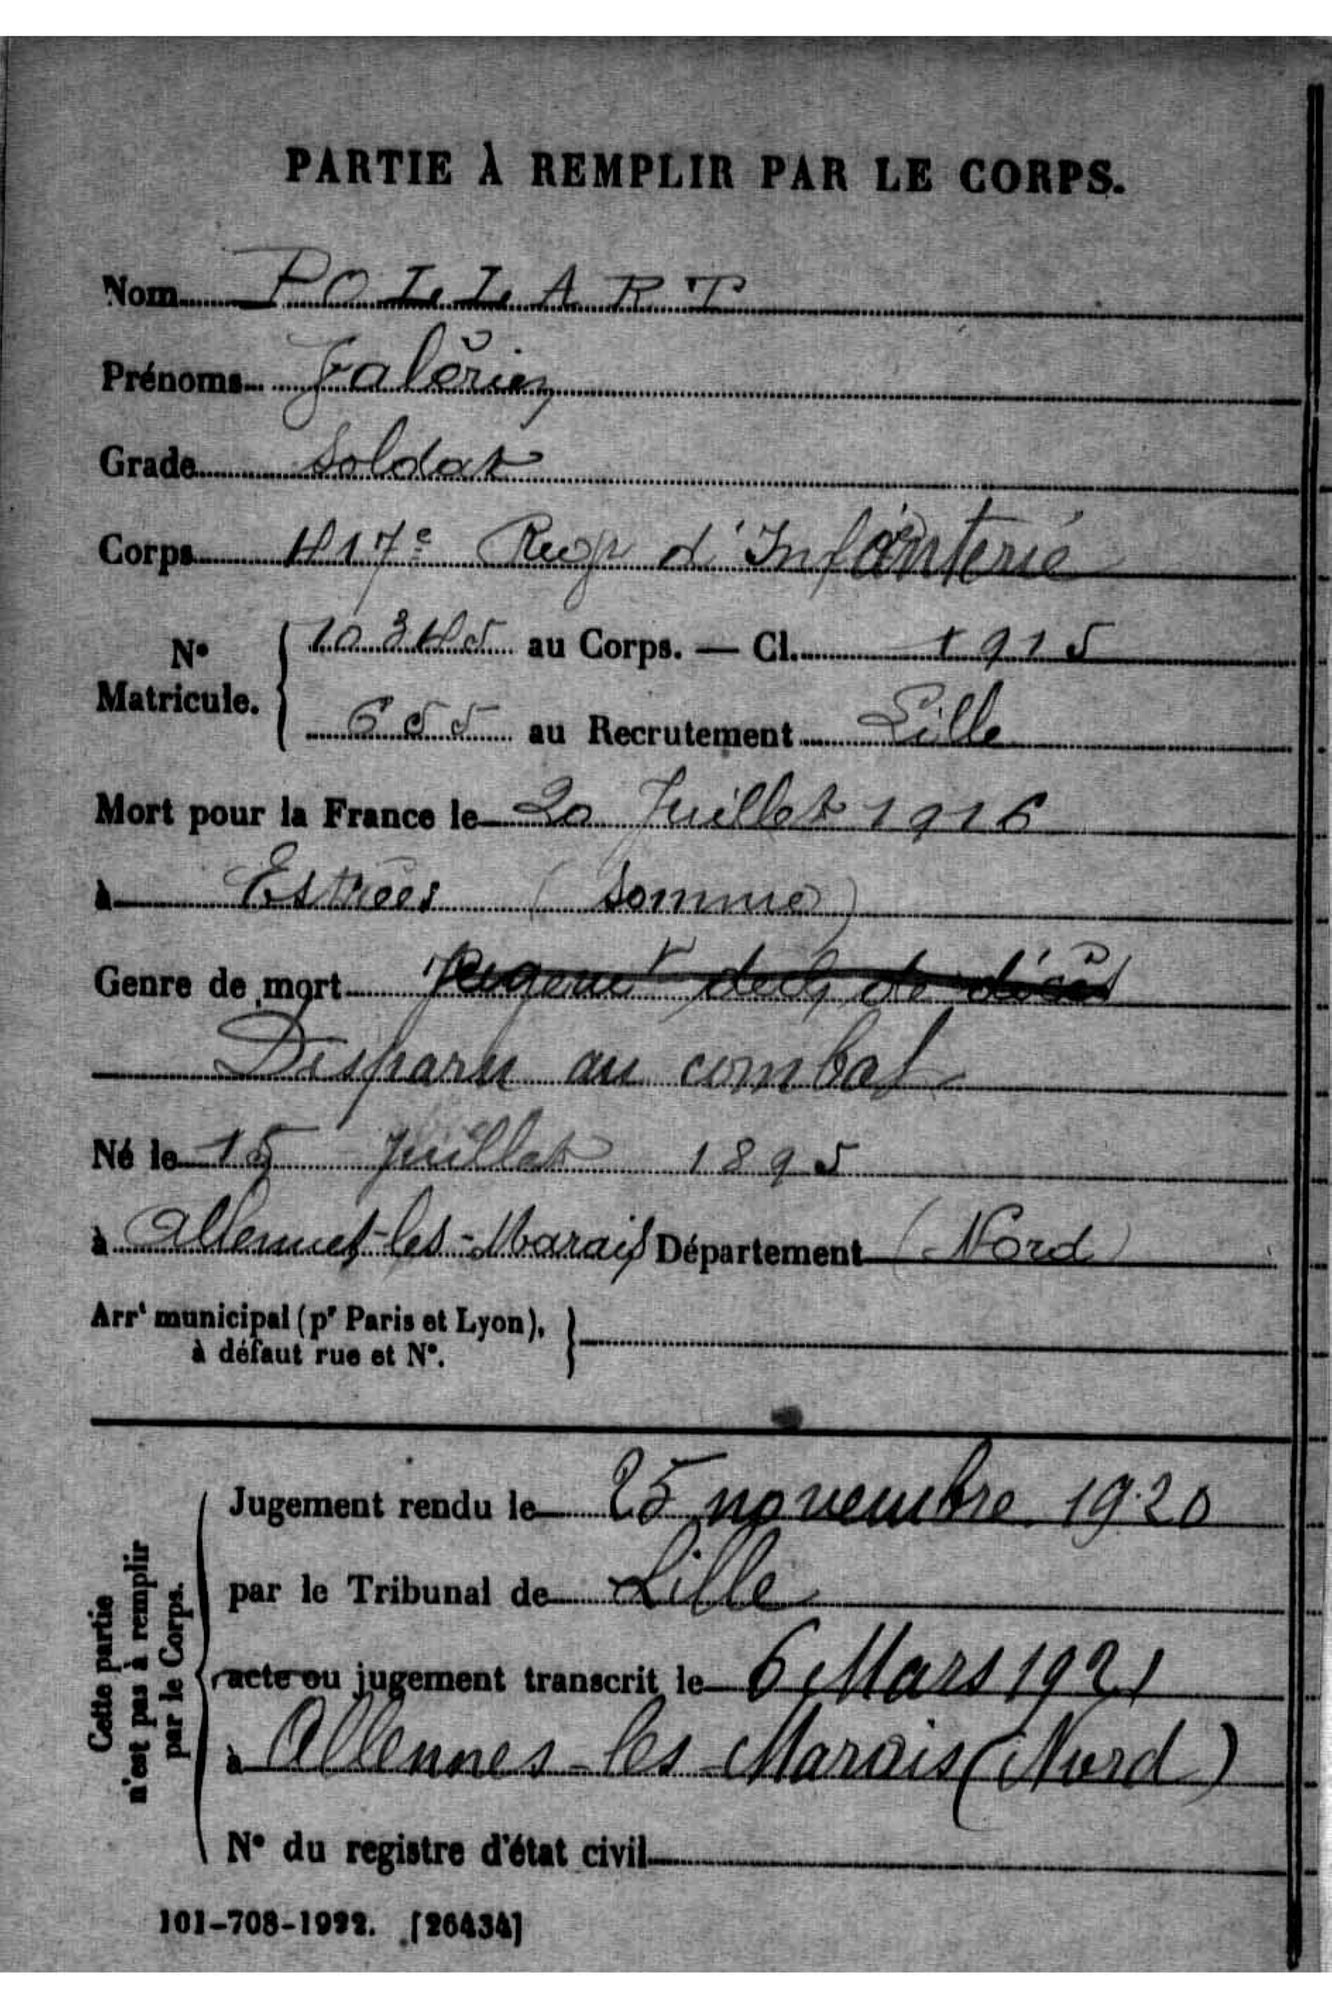 PARTIE À REMPLIR PAR LE CORPS.
Nom POLLART
Prénoms Valérien
Grade Soldat
Corps 417e Reg d'Infanterie
No Matricule. { 10345 au Corps. — Cl. 1915
655 au Recrutement Lille
Mort pour la France le 20 Juillet 1916
à Estrées (Somme)
Genre de mort Jugemt décl de décès
Disparu au combat
Né le 15 Juillet 1895
à Allennes-les-Marais Département (Nord)
Arrt municipal (pr Paris et Lyon), à défaut rue et No. }
Cette partie n'est pas à remplir par le Corps.
Jugement rendu le 25 novembre 1920
par le Tribunal de Lille
acte ou jugement transcrit le 6 Mars 1921
à Allennes-les Marais (Nord)
No du registre d'état civil
101-708-1922. [26434]